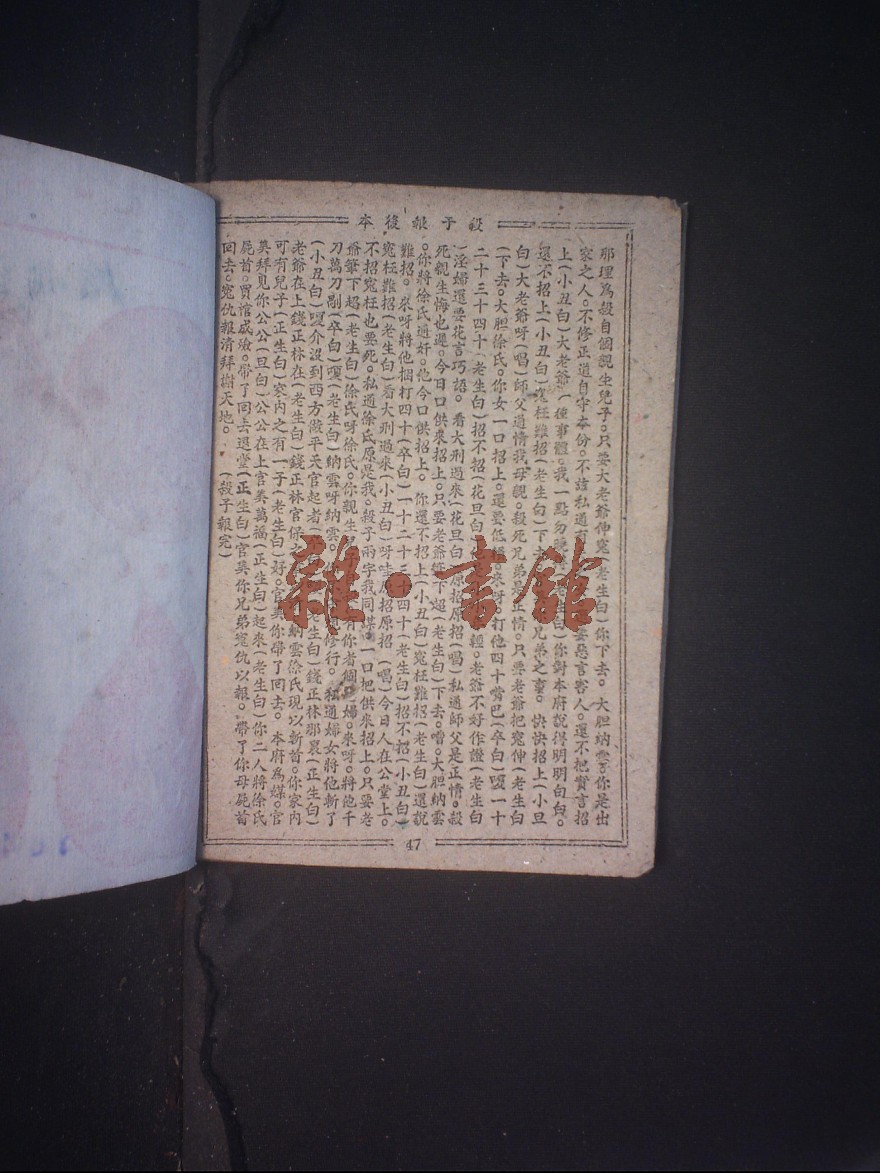 殺子報後本
那理為殺自個親生兒子。只要大老爺伸寃(老生白)你下去。大胆納雲。你是出
家之人。不修正道自守本份。不該私通有 要惡言害人。還不把實言招
上(小丑白)大老爺。(個事體。我一點勿曉 生白)你對本府說得明明白白。
還不招上(小丑白)寃枉難招(老生白)下去 兄弟之事。快快招上(小旦
白)大老爺呀(唱)師父道情我母親。殺死兄弟是正情。只要老爺把寃伸(老生白
(下去。大胆徐氏。你女一口招上。還要低 來呀。打他四十嘴巴(卒白)嘎一十
二十三十四十(老生白)招不招(花旦白) 輕。老爺不好作證(老生白
)淫婦還要花言巧語。看大刑過來(花旦白)原招原招(唱)私通師父是正情。殺
死親生悔也遲。今日口供來招上。只要老爺筆下超(老生白)下去。嘈。大胆納雲
。你將徐氏通奸。他今口供招上。你還不招上(小丑白)寃枉難招(老生白)還說
難招。來呀將他摺打四十(卒白)一十二十三十四十(老生白)招不招(小丑白)
寃枉難招(老生白)看大刑過來(小丑白)呀哇原招原招(唱)今日人在公堂上。
不招寃枉也要死。私通徐氏原是我。殺子兩字我同謀。一口把供來招上。只要老
爺筆下超(老生白)徐氏呀徐氏。你親生 有你者個 婦。來呀。將他千
刀萬刀剮(卒白)嘎(老生白)納雲呀納雲。 修行。私通婦女將他斬了
(小丑白)嘎介沒到西方做平天官起者( 老生白)錢正林那裏(正生白)
老爺在上錢正林在(老生白)錢正林官保之 納雲徐氏現以斬首。你家內
可有兒子(正生白)家內之有一子(老生白)好。官美你帶了回去。本府為媒。官
美拜見你公公(旦白)公公在上官美萬福(正生白)起來(老生白)你二人將徐氏
屍首。買棺盛殮。帶了回去退堂(正生白)官美你兄弟寃仇以報。帶了你母屍首
回去。寃仇報清拜謝天地。 (殺子報完)
47
雜·書館